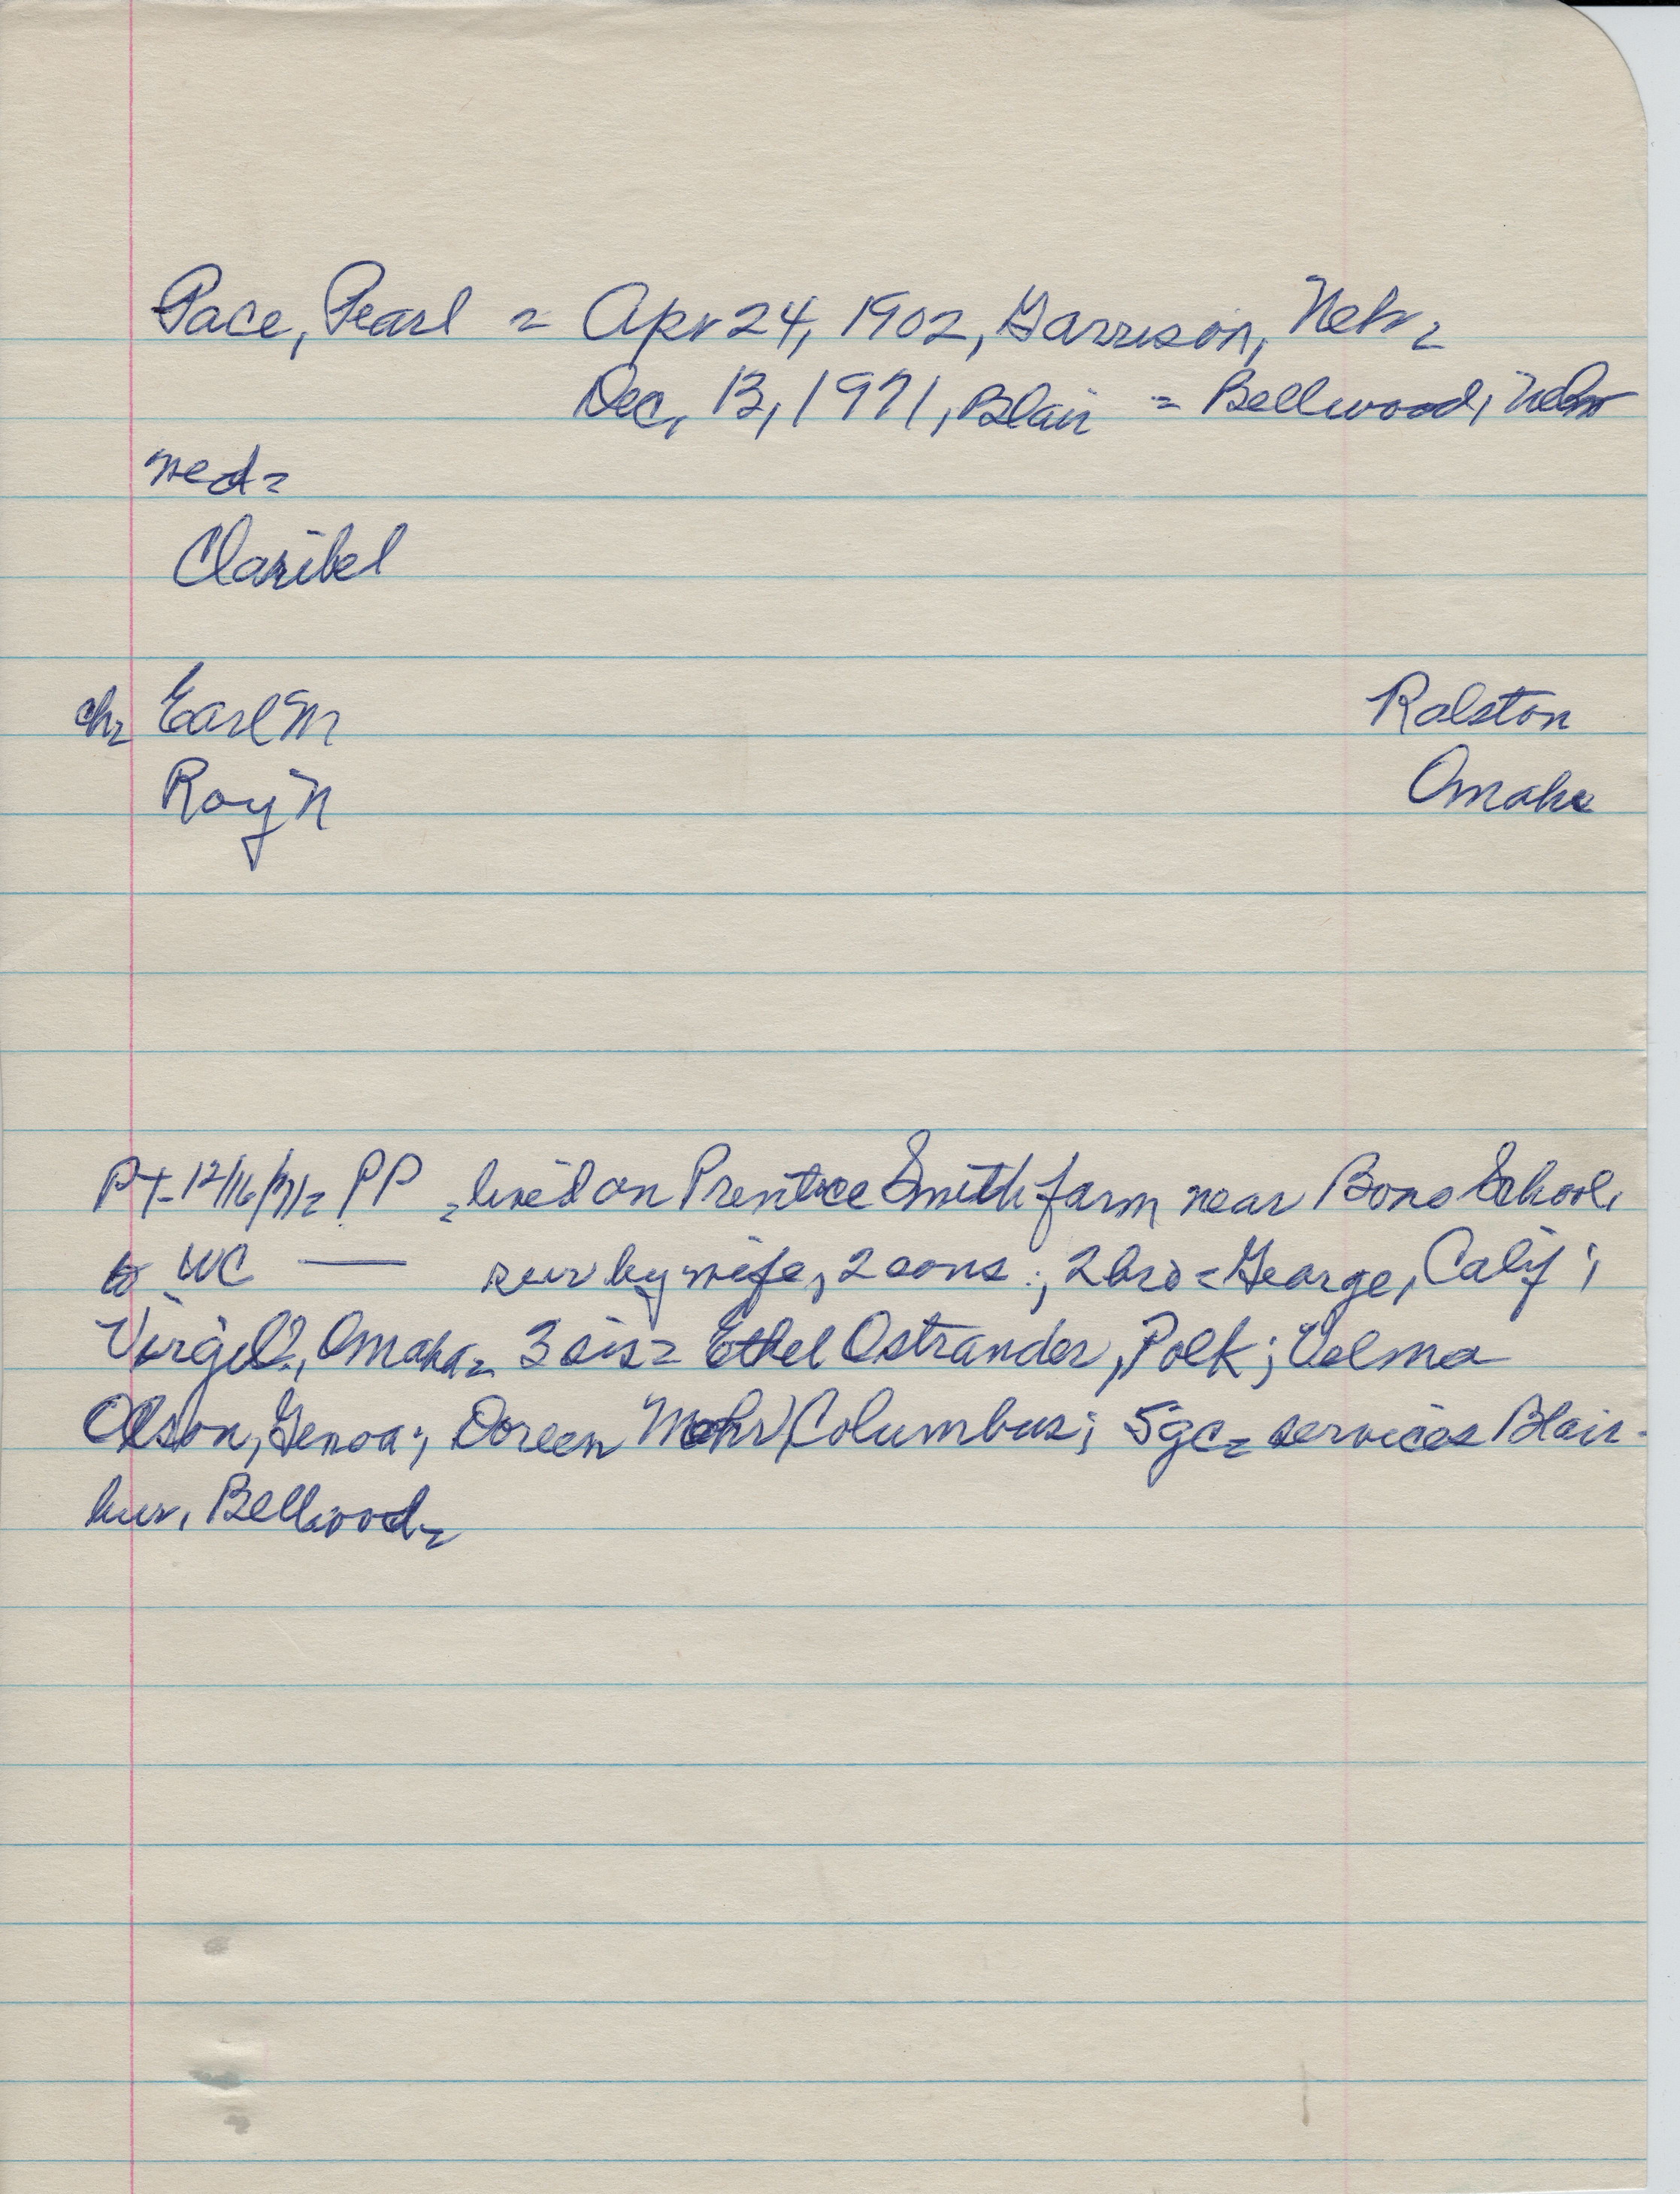 Pace, Pearl = Apr 24, 1902, Garrison, Nebr =
Dec, 13, 1971, Blair = Bellwood, Nebr
wed =
Claribel
ch = Earl M Ralston
Roy N Omaha
PT - 12/16/71 = PP = lived on Prentice Smith farm near Bono School,
to WC — sur by wife, 2 sons; 2 bro = George, Calif;
Virgil, Omaha = 3 sis = Ethel Ostrander, Polk; Velma
Olson, Genoa; Doreen Mohr, Columbus; 5 gc = services Blair -
bur, Bellwood =